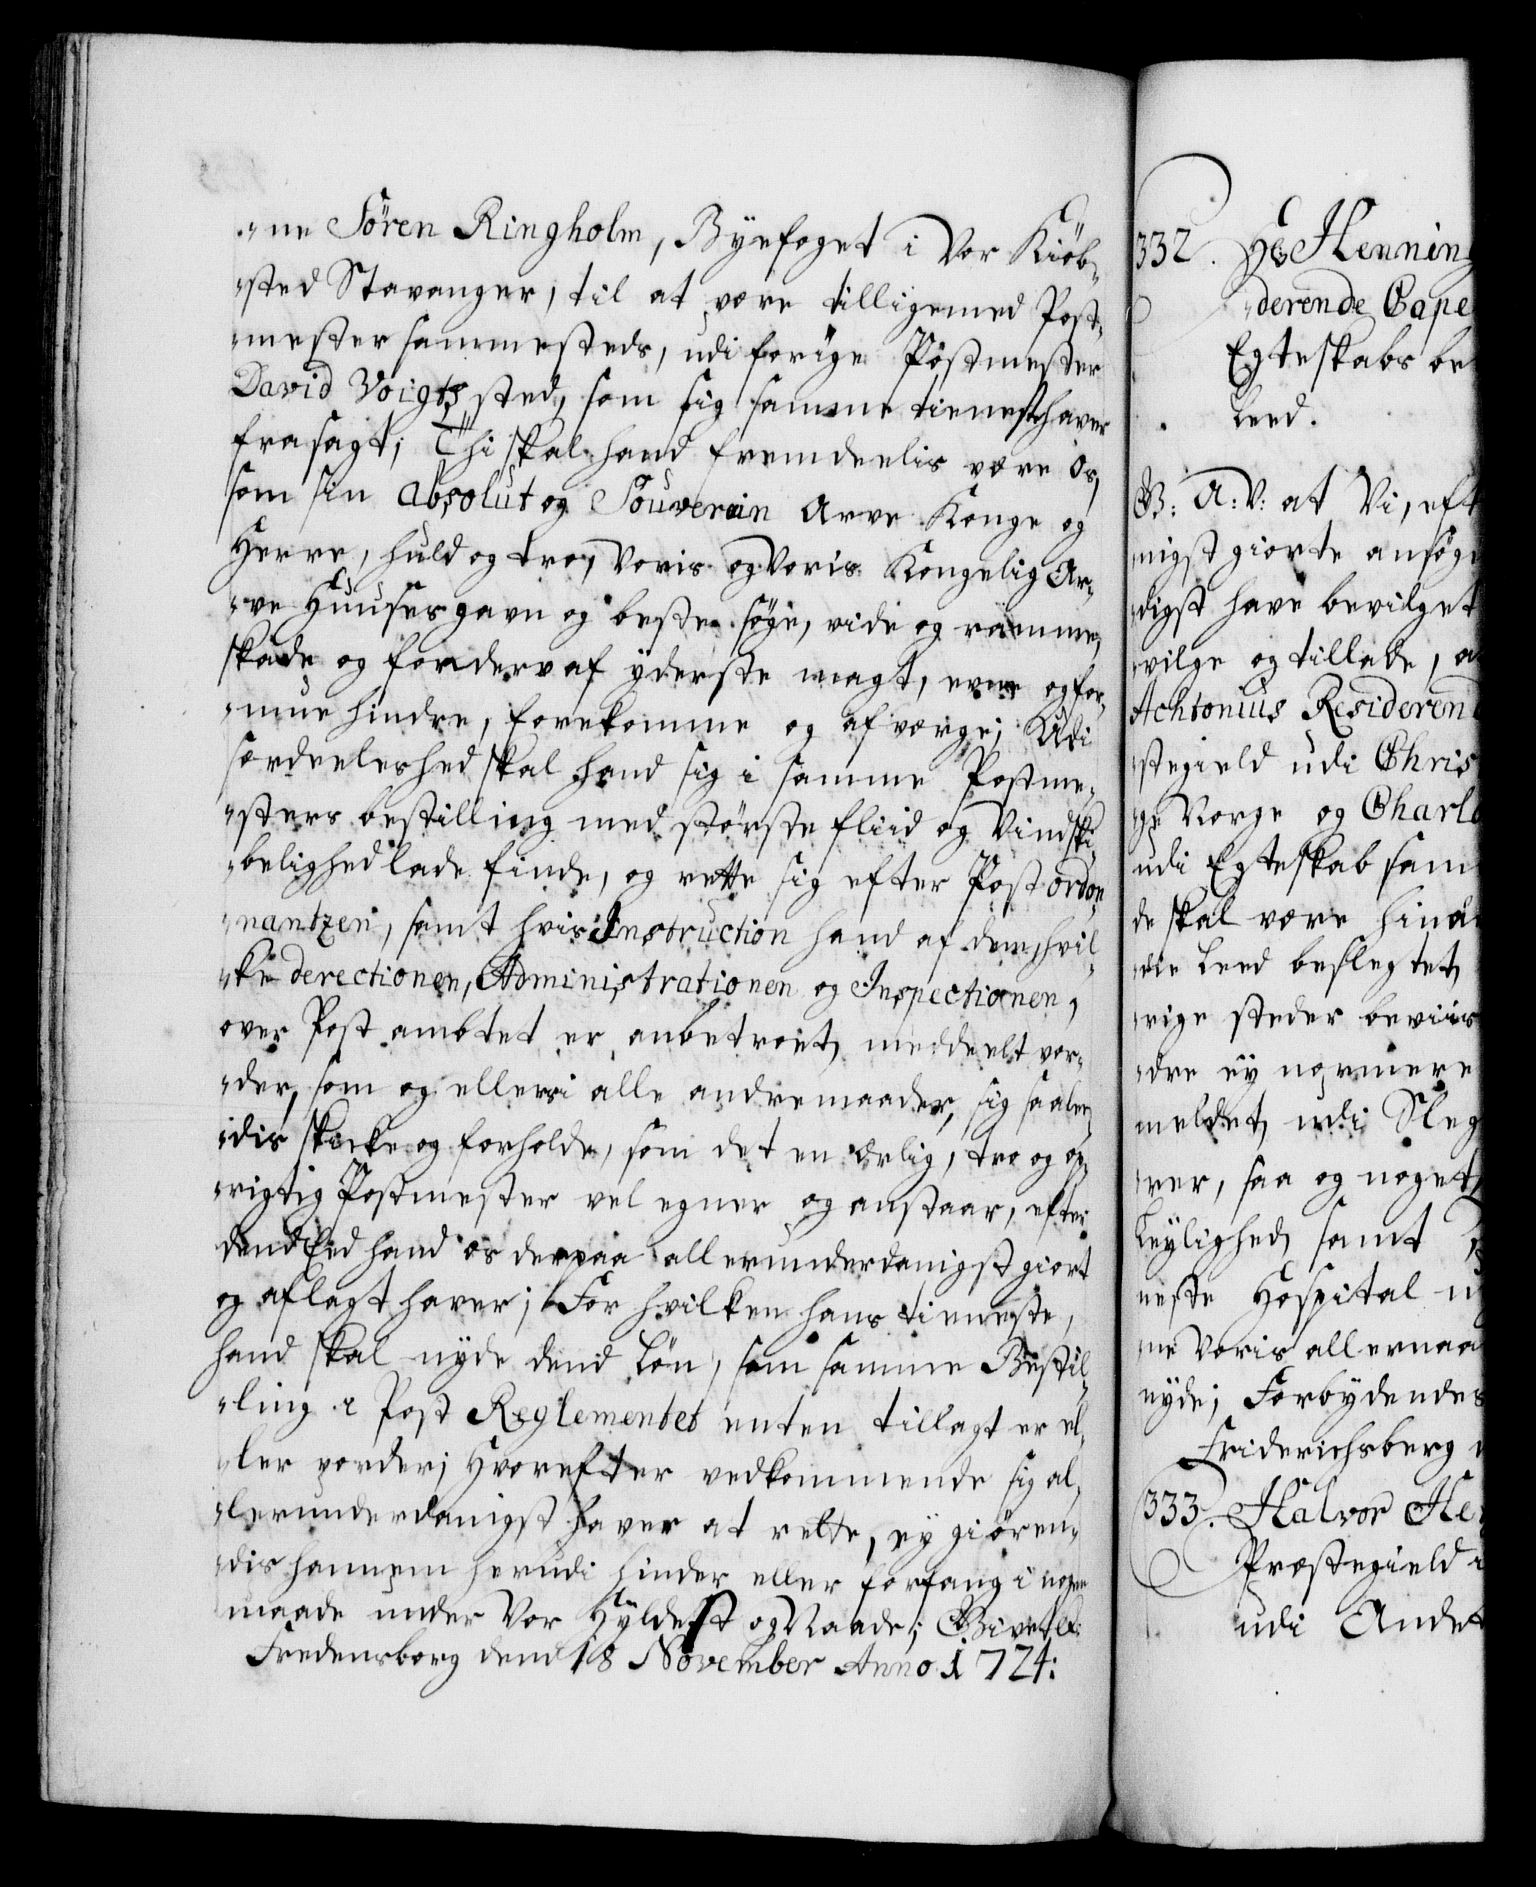 -ne Sören Ringholm, Byefoget i Vor Kiöb-
-sted Stavanger, til at være tilligemed Post-
-mester sammesteds, udi forige Postmester
David Voigts sted, som sig samme tieneste haver
frasagt; Thi skal hand fremdeelis være Os,
som sin absolut og Souverain Arve Konge og
Herre, huld og troe, Voris og Voris Kongelig Ar-
-ve Huuses gavn og beste søge, vide og ramme,
skade og forderv af yderste magt, evne og for-
-mue hindre, forekomme og afværge; Udi
særdeeleshed skal hand sig i samme Postme-
-sters bestilling med største fliid og Vindski-
-belighed lade finde, og rette sig efter Post ordon-
-nantzen, samt hvis Instruction hand af dem, hvil-
-ke derectionen, Administrationen og Inspectionen,
over Post ambtet er anbetroet, meddeelt vor-
-der, som og ellers i alle andre maader, sig saalen-
-dis skicke og forholde, som det en ærlig, tro og op-
-rigtig Postmester vel egner og anstaar, efter
dend Eed hand os derpaa allerunderdanigst giort
og aflagt haver; For hvilken hans tieneste,
hand skal nyde dend løn, som samme Bestil-
-ling i Post Reglementet enten tillagt er el-
-ler vorder; Hvorefter vedkommende sig al-
-lerunderdanigst haver at rette, ey giören-
-dis hannem herudi hinder eller forfang i nogen
maade under Vor Hyldest og Naade; Givet etc:
Fredensborg dend 18 November Anno 1724:
332. Hr Henning
-derende Cape
Egteskabs be
Leed.
G: A: V: at Vi, eft
-nigst giorte ansøg
-digst have bevilget
-vilge og tillade, a
Achtonius Residerend
-stegield udi Chris
-ge Norge og Charlo
udi Egteskab sam
de skal være hinan
-die Leed beslegtet,
-rige steder beviis
-dre ey nærmere
meldet, udi Sleg
-rer, saa og noget
Leylighed, samt
neste Hospital u
-ne Voris allernaa
nyde; Forbydendes
Friderichsberg
333. Halvor He
Præstegield i
udi Andet